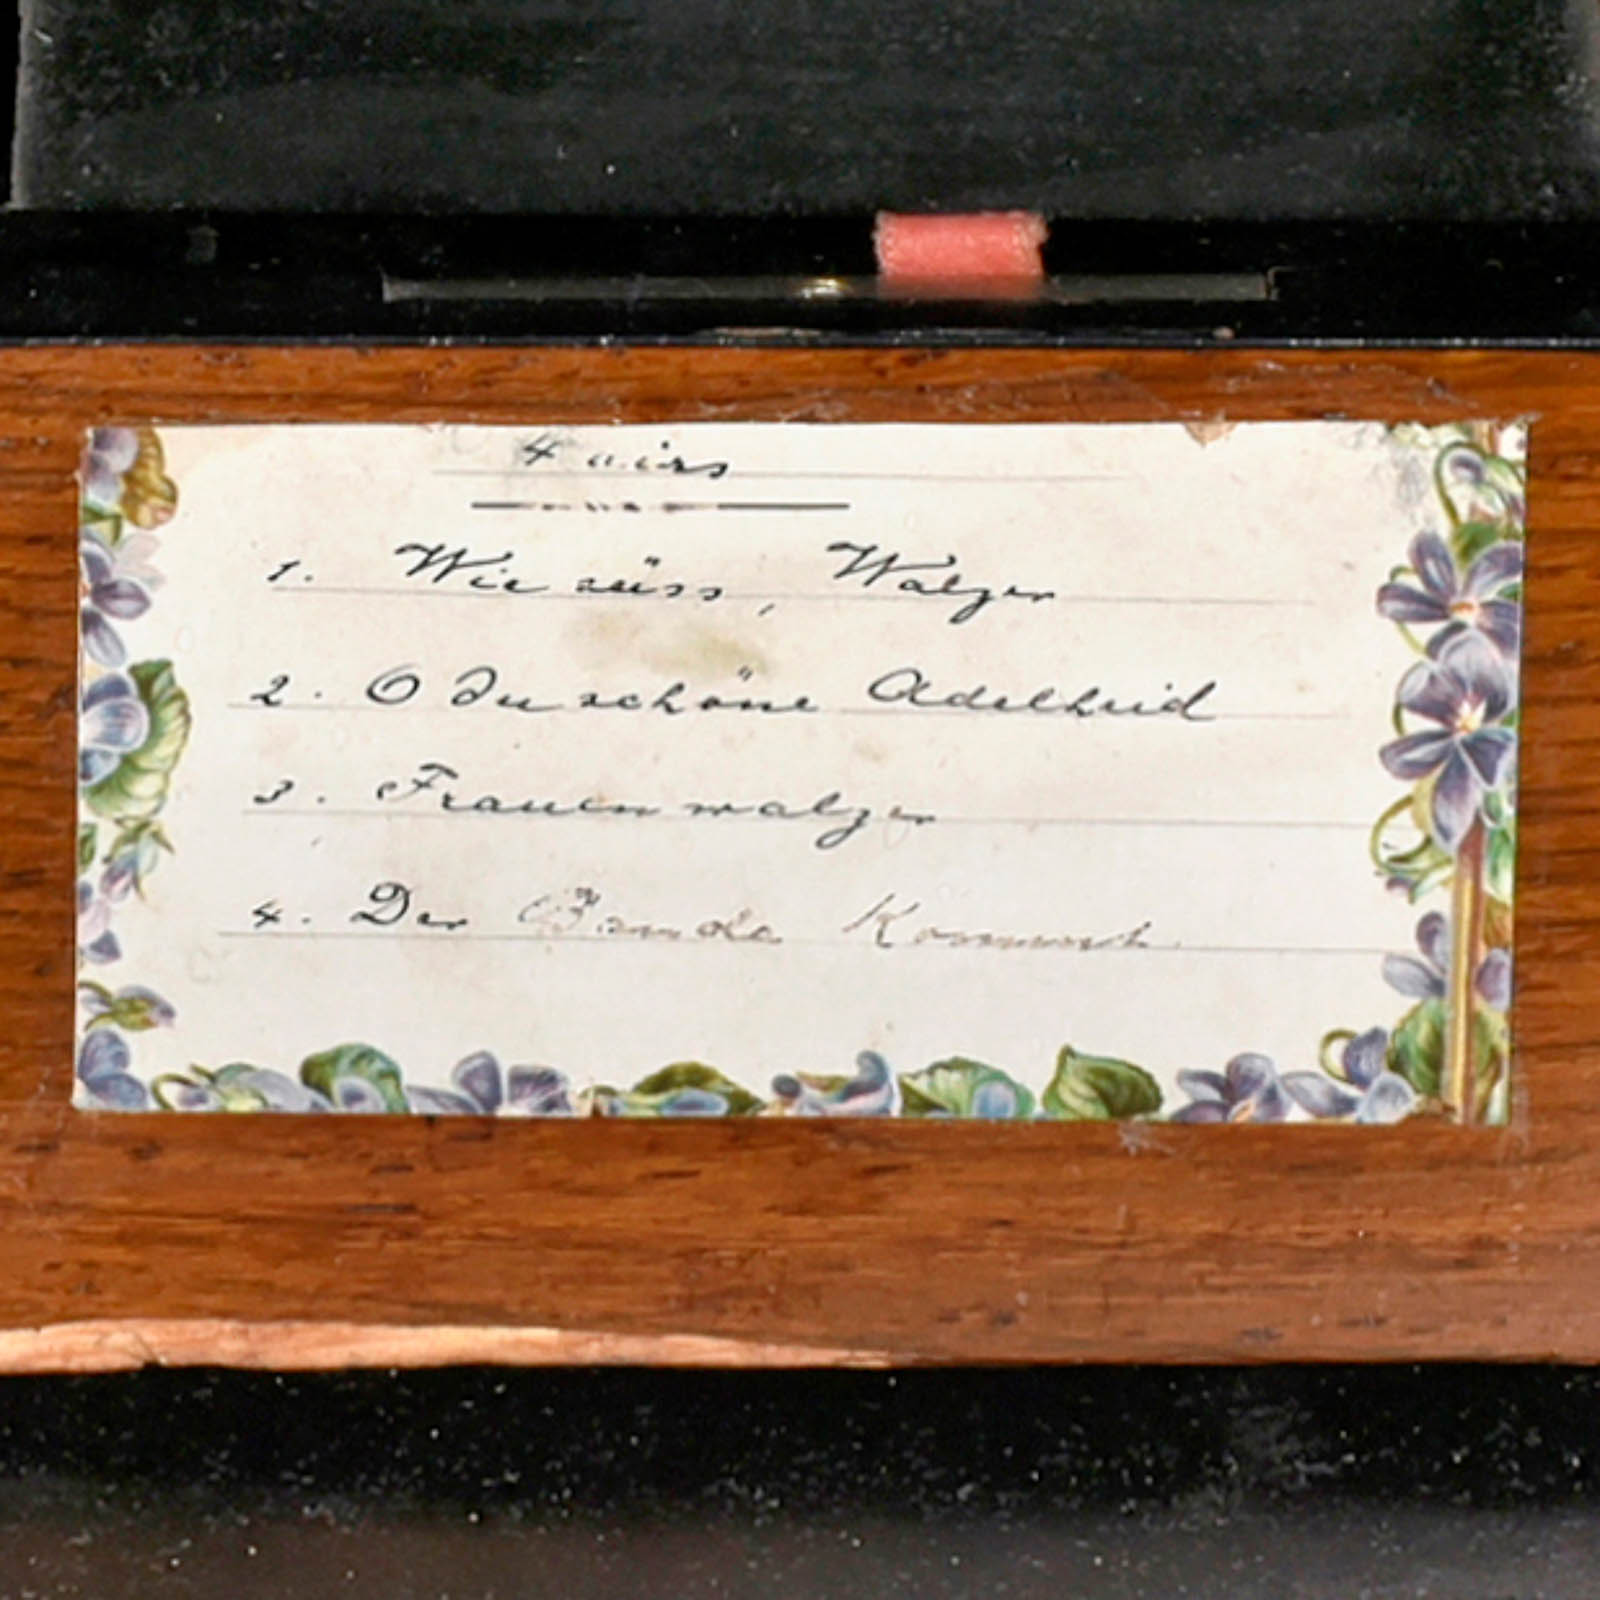 4 airs
1. Wie süss, Walzer
2. O du schöne Adelheid
3. Frauenwalzer
4. Der Kommt